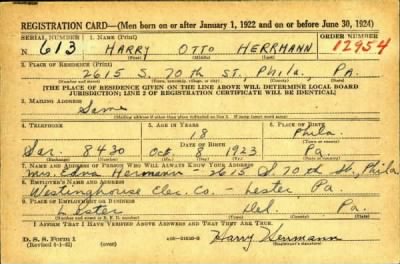 REGISTRATION CARD—(Men born on or after January 1, 1922 and on or before June 30, 1924)
SERIAL NUMBER 1. NAME (Print) ORDER NUMBER
N 613 HARRY OTTO HERRMANN 12954
(First) (Middle) (Last)
2. PLACE OF RESIDENCE (Print)
2615 S. 70th ST., Phila. PA.
(Number and street) (Town, township, village, or city) (County) (State)
[THE PLACE OF RESIDENCE GIVEN ON THE LINE ABOVE WILL DETERMINE LOCAL BOARD
JURISDICTION; LINE 2 OF REGISTRATION CERTIFICATE WILL BE IDENTICAL]
3. MAILING ADDRESS
Same
4. TELEPHONE 5. AGE IN YEARS 6. PLACE OF BIRTH
18 Phila.
DATE OF BIRTH (Town or county)
Sar. 8430 Oct 8 1923 Pa.
(Exchange) (Number) (Mo.) (Day) (Yr.) (State or country)
7. NAME AND ADDRESS OF PERSON WHO WILL ALWAYS KNOW YOUR ADDRESS
Mrs. Edna Hermann 2615 S. 70th St., Phila
8. EMPLOYER'S NAME AND ADDRESS
Westinghouse Elec. Co. - Lester Pa.
9. PLACE OF EMPLOYMENT OR BUSINESS
Lester Del. Pa.
(Number and street or R. F. D. number) (Town) (County) (State)
I AFFIRM THAT I HAVE VERIFIED ABOVE ANSWERS AND THAT THEY ARE TRUE.
D. S. S. Form 1
Harry Herrmann